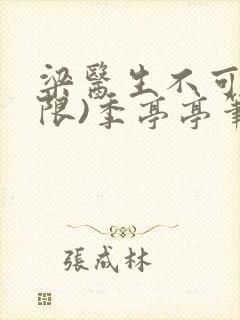 梁醫生不可
限)季亭亭筆
張成林